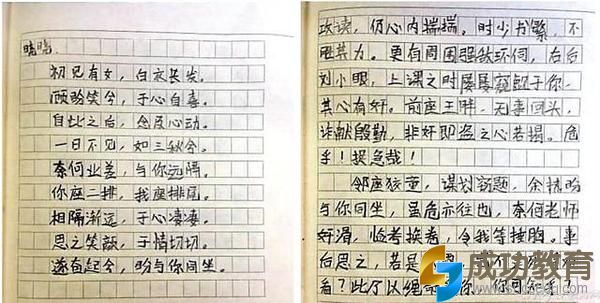 晓晓
初见有女，白衣长发。
顾盼笑兮，于心自喜。
自此之后，念及心动。
一日不见，如三秋兮。
奈何业差，与你远隔。
你座二排，我座排尾。
相隔渐远，于心凄凄。
思之笑颜，于情切切。
遂奋起兮，盼与你同坐。
攻读，仍心内惴惴。时少书繁，不
胜其力。更有周围强敌环伺，右后
刘小眼，上课之时屡屡窥觑于你，
其心有奸。前座王胖，无事回头，
诈献殷勤，非奸即盗之心若揭。危
乎！急哉！
邻座狡童，谋划窃题，余 盼
与你同坐，虽危亦往也，奈 老师
奸滑，临考换卷，令我等捶胸。事
后思之，若是
你，你可知乎？
成功教育